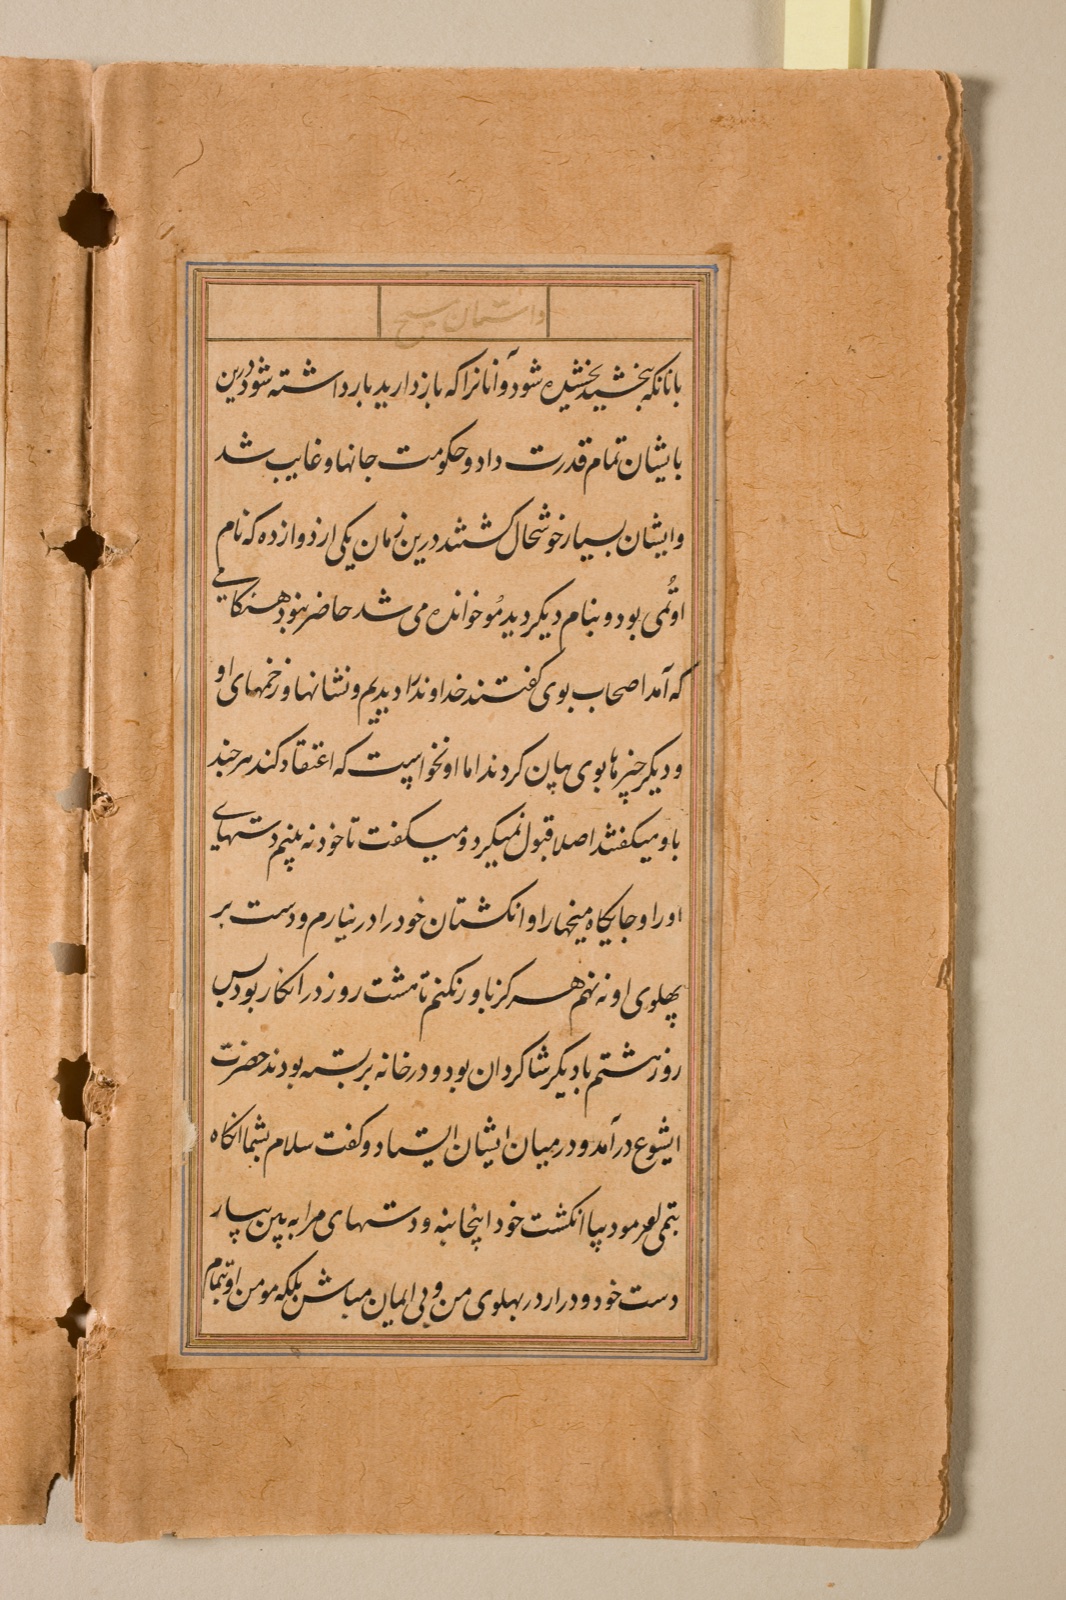 داستان مسیح
بانانکه ببخشید بخشیده شود و آنانرا که بازدارید بازداشته شود درین
بایشان تمام قدرت داد و حکومت جانها و غایب شد
وایشان بسیار خوشحال کشتند درین زمان یکی از دوازده که نام
او تُمی بود و بنام دیکر دیدیمُو خوانده می شد حاضر نبود هنکامی
که آمد اصحاب بوی کفتند خداوند را دیدیم و نشانها و زخمهای او
و دیکر چیزها بوی بیان کردند اما او نخواست که اعتقاد کند هرچند
باو میکفتند اصلا قبول نمیکرد و میکفت تا خود نه بینم دستهای
اورا و جایکاه میخها را و انکشتان خود را در نیارم و دست بر
پهلوی او نه نهم هرکز باور نکنم تا هشت روز در انکار بود پس
روز هشتم با دیکر شاکردان بود و در خانه بر بسته بودند حضرت
ایشوع درآمد و در میان ایشان ایستاد و کفت سلام بشما انکاه
بتمی فرمود بیا انکشت خود اینجا بنه و دستهای مرا به بین بیار
دست خود و درار در پهلوی من و بی ایمان مباش بلکه مومن او بتمام